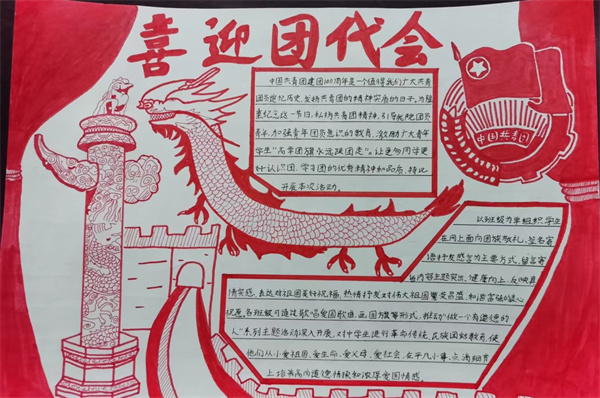 喜迎团代会
中国共青团建团100周年是一个值得我们广大共青
团员追忆历史,发扬共青团的精神实质的日子。为隆
重纪念这一节日,弘扬共青精神,引导我院团员
青年,加强青年团员意识的教育,激励广大青年
学生"高举团旗永远跟团走"。让更多同学更
好认识团、学习团的优秀精神和品质,特此
开展本次活动。
中国共青团
以班级为单组织学生
在网上面向国旗敬礼,签名寄
语抒发感言为主要方式,留言寄
语内容主题突出、健康向上、反映真
情实感,表达对祖国美好祝福,热情抒发对伟大祖国繁荣昌盛、和谐富强的衷心
祝愿。各班级可通过歌唱爱国歌曲、画国旗等形式,推动"做一个有道德的
人"系列主题活动深入开展,对中学生进行革命传统、民族团结教育,使
他们从小爱祖国、爱生命、爱父母、爱社会、在平凡小事、点滴细节
上培养高尚道德情操和浓厚爱国情感。